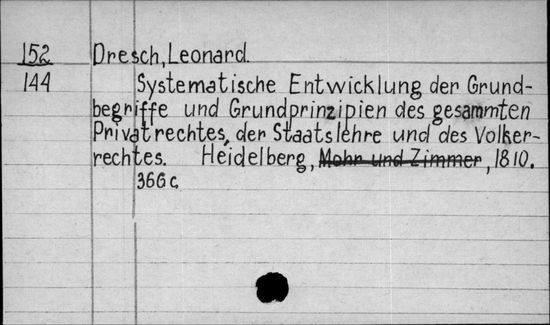 152 Dresch, Leonard.
144 Systematische Entwicklung der Grund-
begriffe und Grundprinzipien des gesammten
Privatrechtes, der Staatslehre und des Volker-
rechtes. Heidelberg, Mohr und Zimmer, 1810.
366 c.